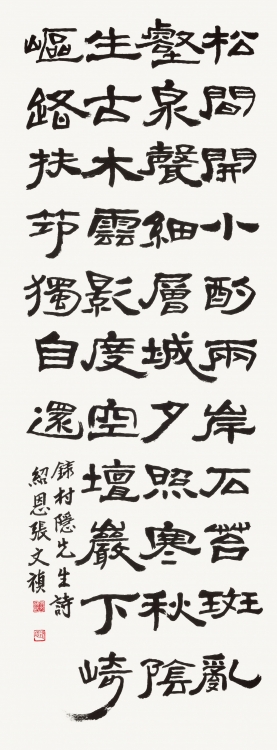 松間開小酌兩岸石苔斑亂
壑泉聲細層城夕照寒秋陰
生古木雲影度空壇巖下崎
嶇路扶筇獨自還
村隱先生詩
紹恩張文禎